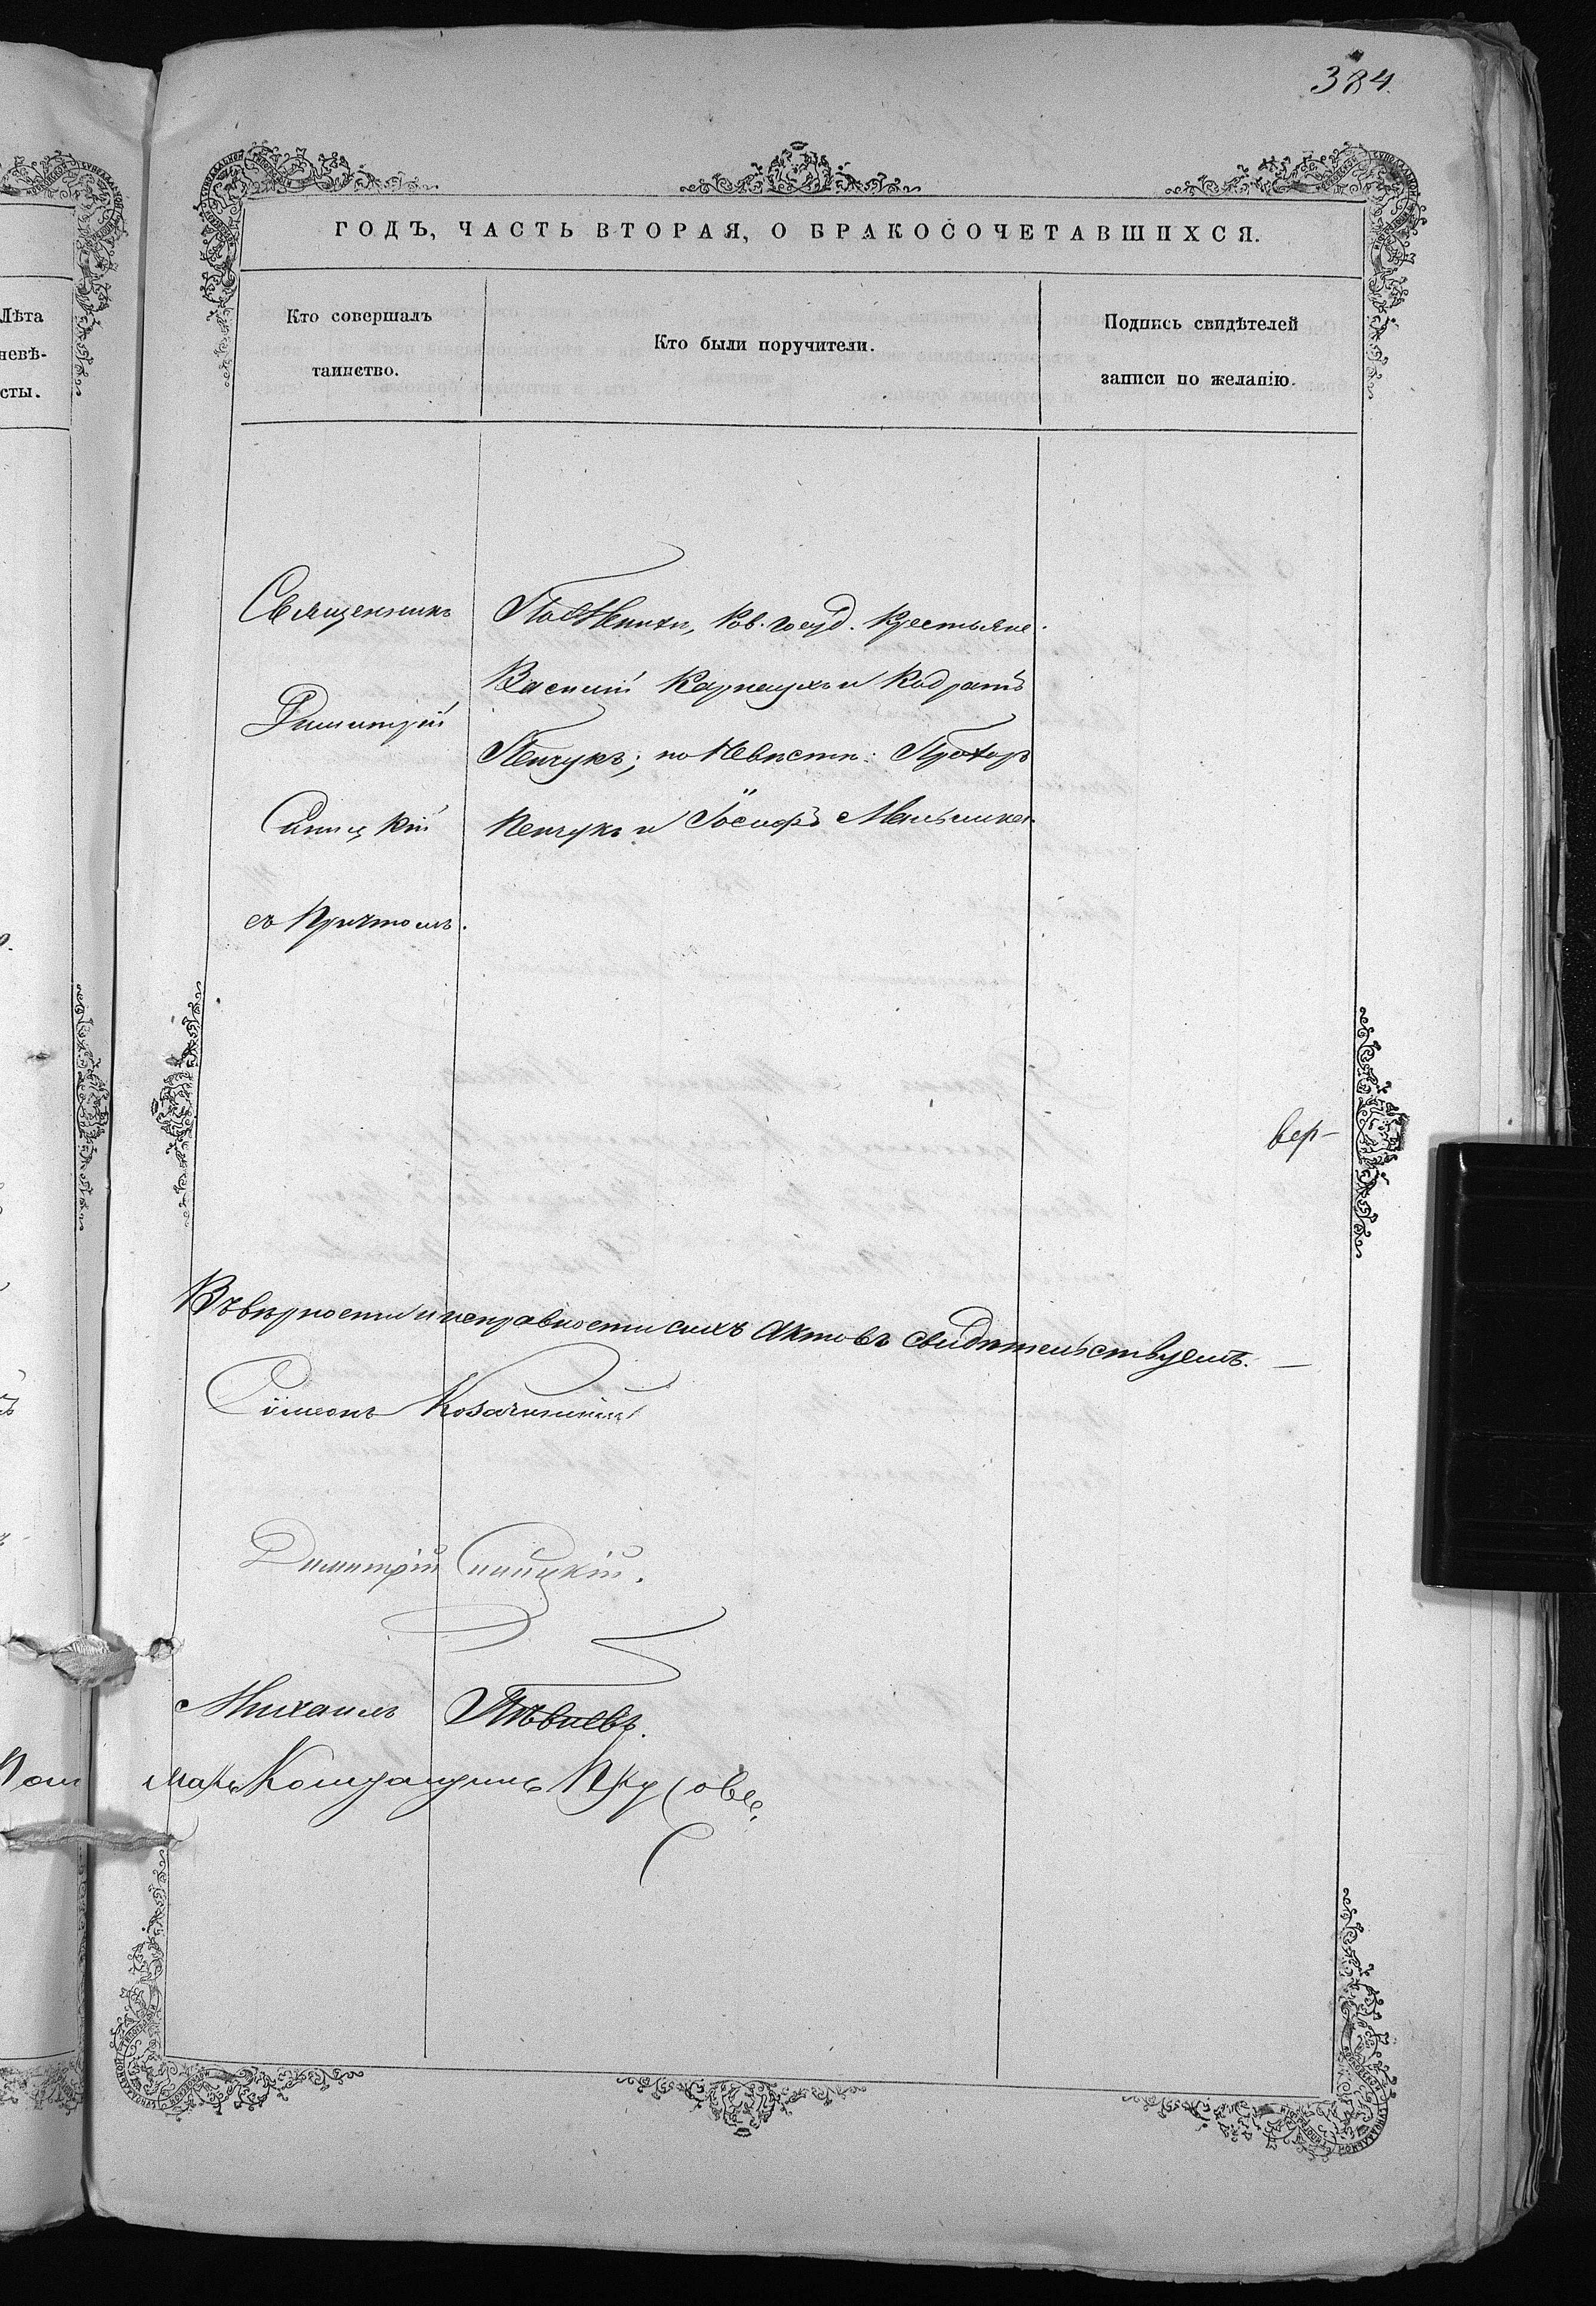 384.
ГОДЪ, ЧАСТЬ ВТОРАЯ, О БРАКОСОЧЕТАВШИХСЯ.
Лѣта
невѣ-
сты.
Кто совершалъ
таинство.
Кто были поручители.
Подпись свидѣтелей
записи по желанію.
Священникъ
Димитрій
Синицкій
съ Причтомъ.
По Женихѣ, Ков. госуд. Крестьяне
Василій Карпецухъ и Кодратъ
Пенчукъ; по Невѣстѣ: Прохоръ
Пенчукъ и Іосифъ Мельникъ
вер-
Въ вѣрности и исправности сихъ актовъ свидѣтельствуемъ. —
Сѵмеонъ
Димитрій Синицкій.
Михаилъ Пѣвневъ.